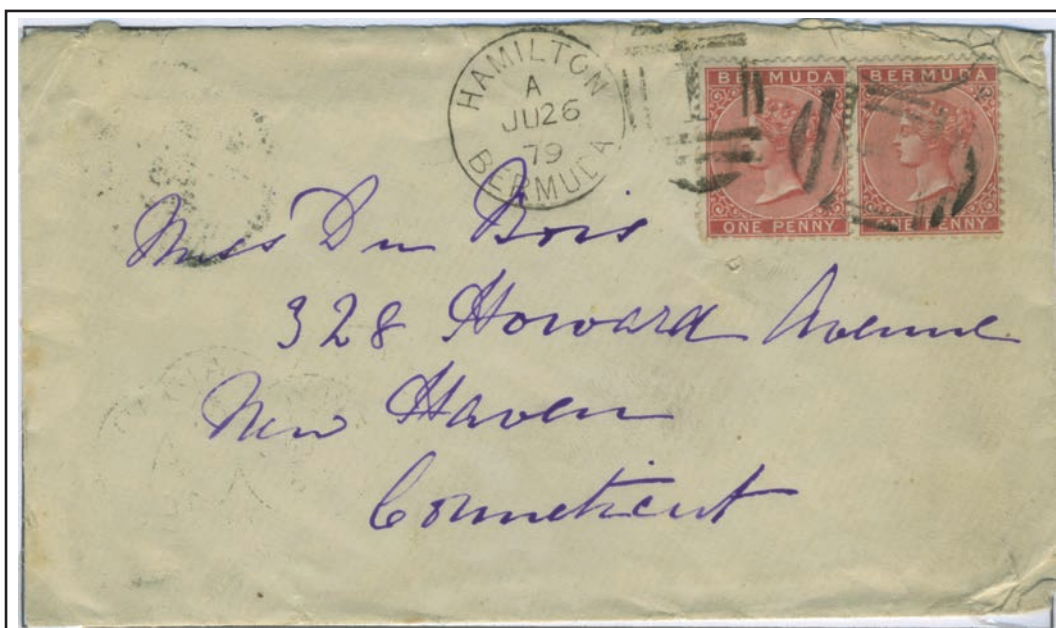 HAMILTON
A
JU26
79
BERMUDA
BERMUDA BERMUDA
ONE PENNY ONE PENNY
Miss Du Bois
328 Howard Avenue
New Haven
Conneticut